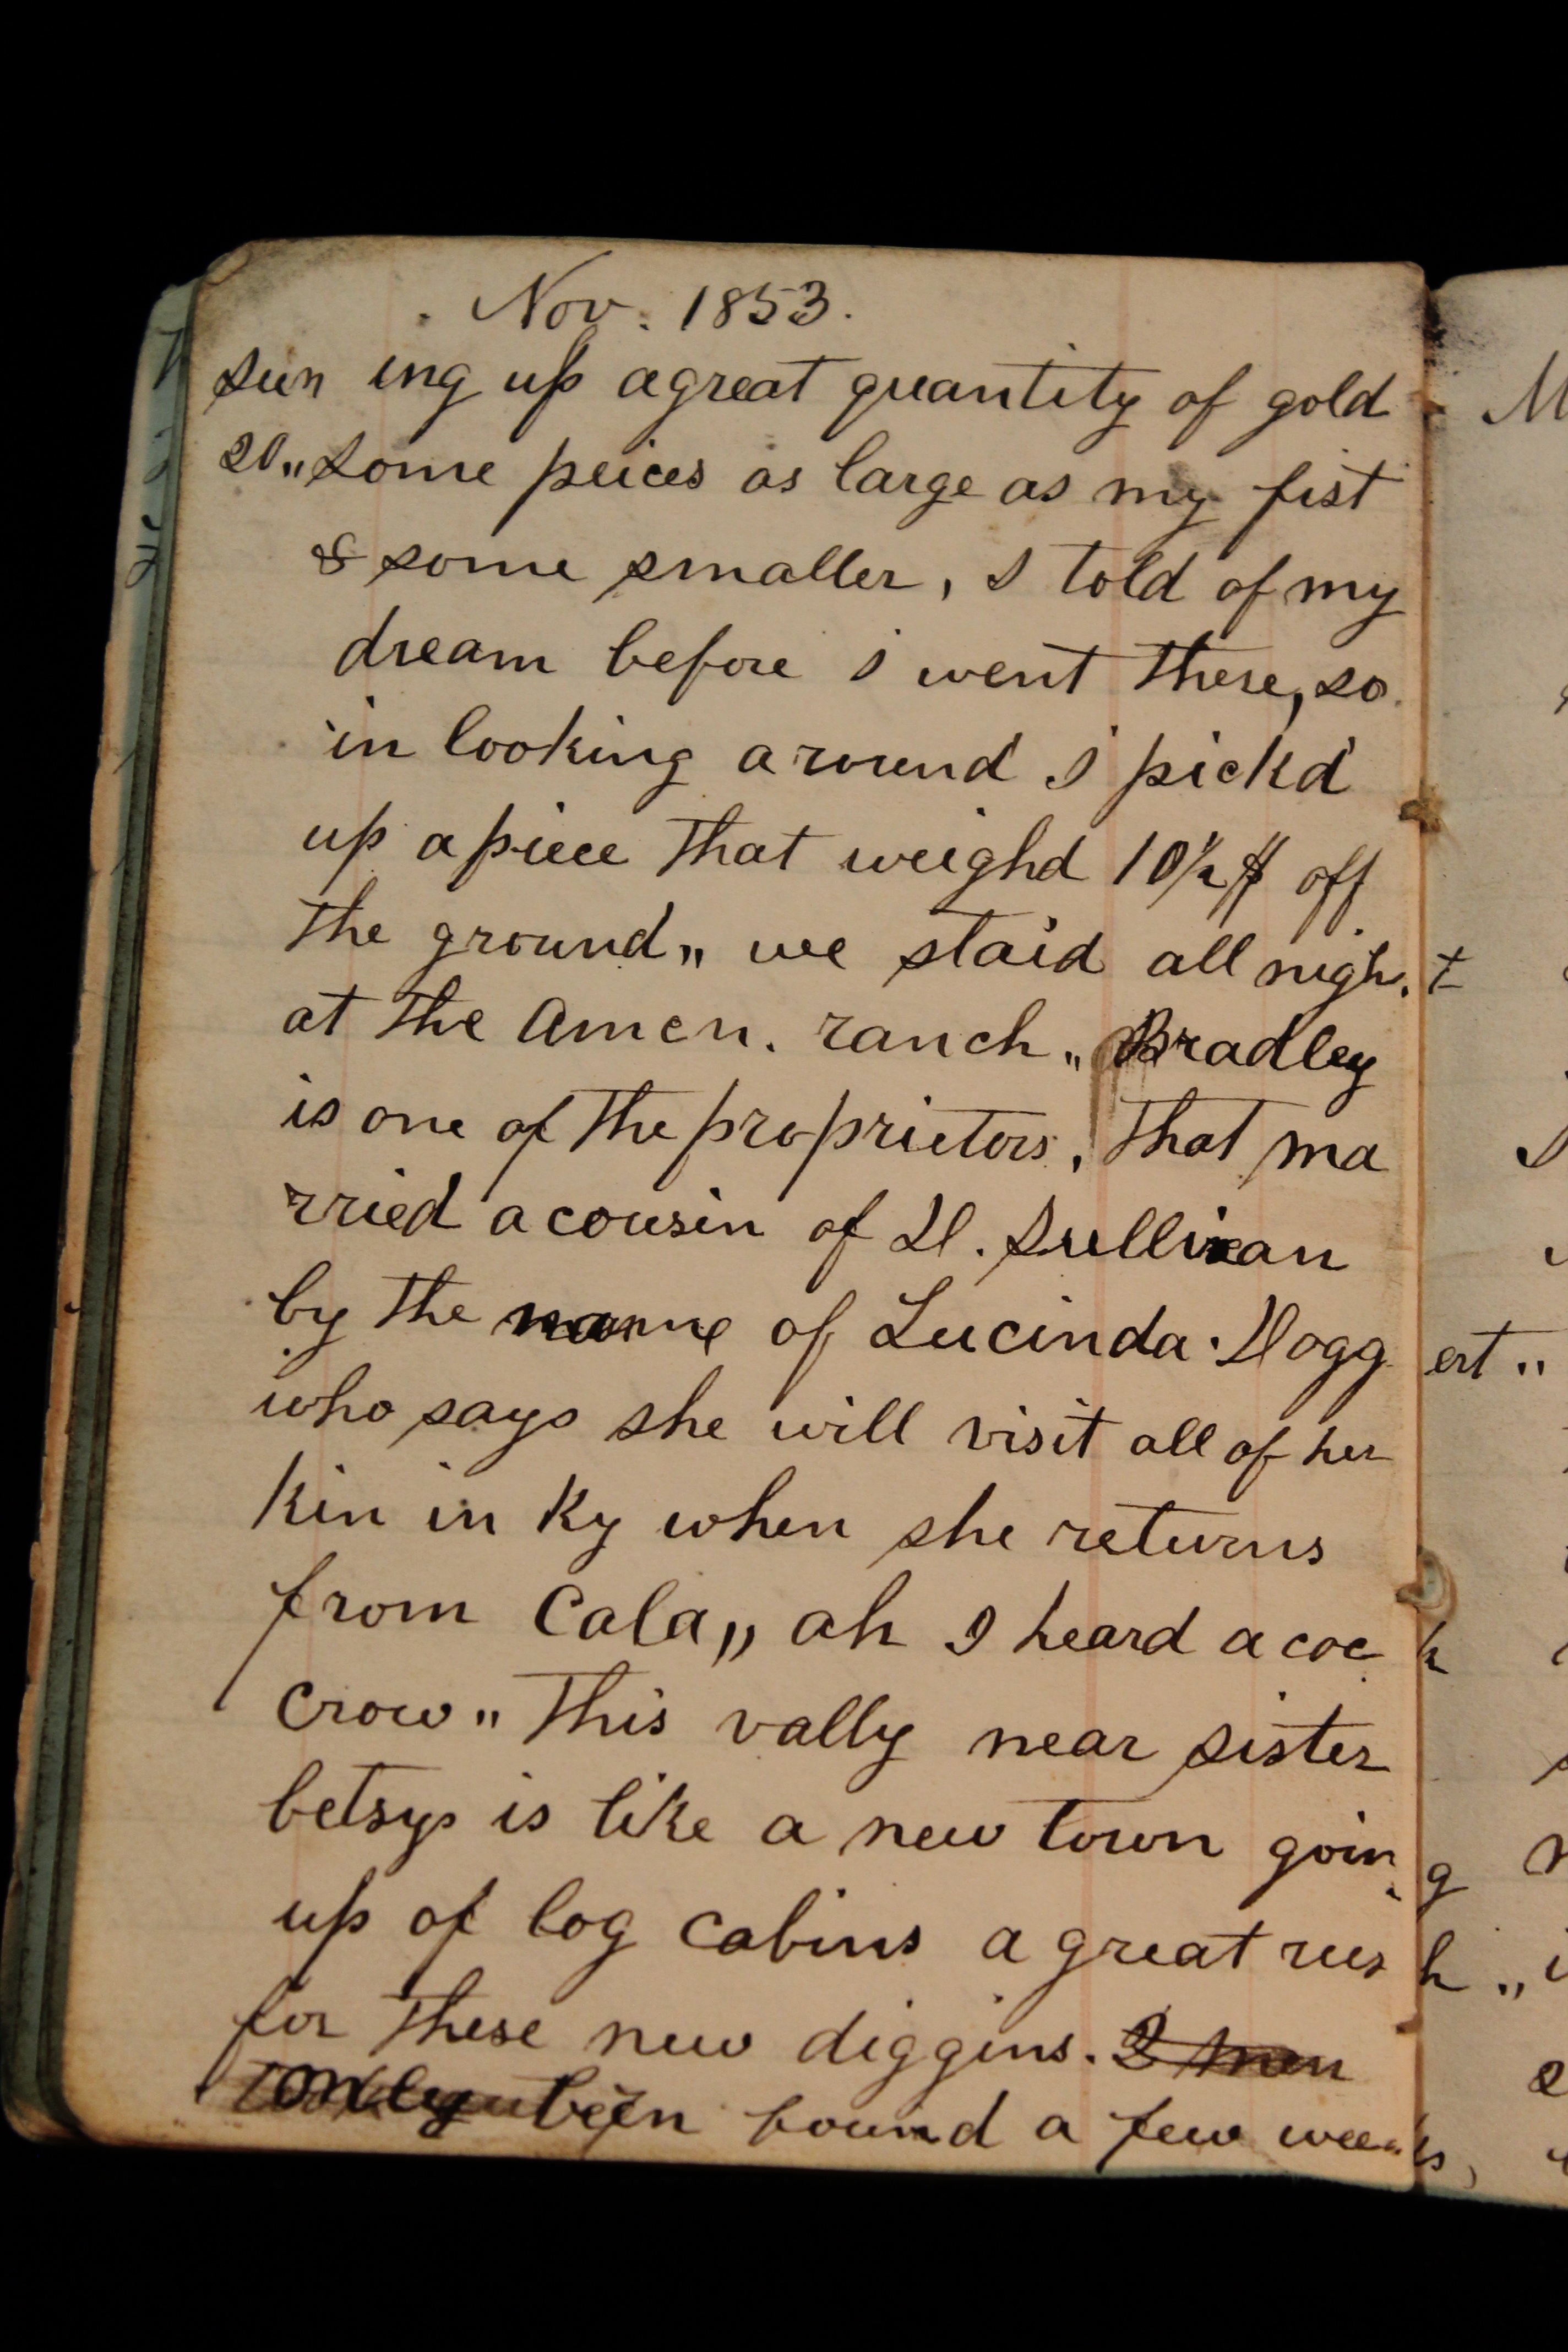 Nov. 1853.
sun ing up a great quantity of gold
20 „ some peices as large as my fist
& some smaller, I told of my
dream before I went there, so
in looking around I pickd
up a piece that weighd 10½ $ off
the ground „ we staid all night
at the Amen. ranch „ Bradley
is one of the proprietors, that ma
rried a cousin of D. Sullivan
by the name of Lucinda Doggert „
who says she will visit all of her
kin in Ky when she returns
from Cala „ ah I heard a cock
crow „ This vally near sister
betsys is like a new town going
up of log cabins a great rush „
for these new diggins. 2 men
only been found a few weeks,